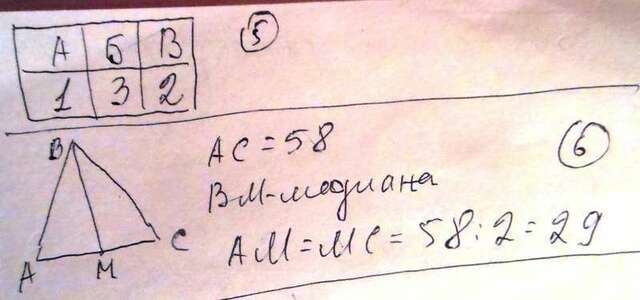 А Б В
1 3 2
5
6
AC = 58
BM - медиана
AM = MC = 58 : 2 = 29
B
C
A
M